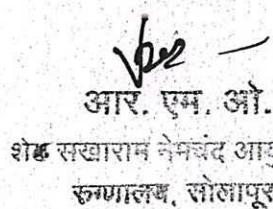 आर. एम. ओ.
शेठ सखाराम नेमचंद आयु
रुग्णालय, सोलापूर